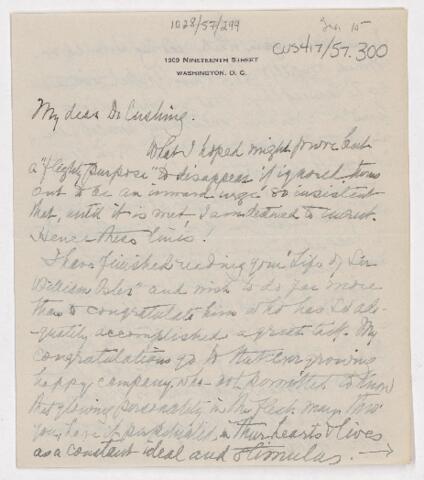 1028/57/299
Jan 15
CUS417/57.300
1309 NINETEENTH STREET
WASHINGTON, D. C.
My dear Dr Cushing.
What I hoped might prove but
a "flighty purpose" to disappear if ignored turns
out to be an inward urge so insistent
that, until it is met, I am destined to
Hence these lines!
I have finished reading your "Life of Sir
William Osler" and wish to do far more
than to congratulate him who has so ade-
quately accomplished a great task. My
congratulations go to that ever growing
happy company, who not permitted to know
that glowing personality in the flesh, may thro'
you have it perpetuated in their hearts & lives
as a constant ideal and stimulus. →